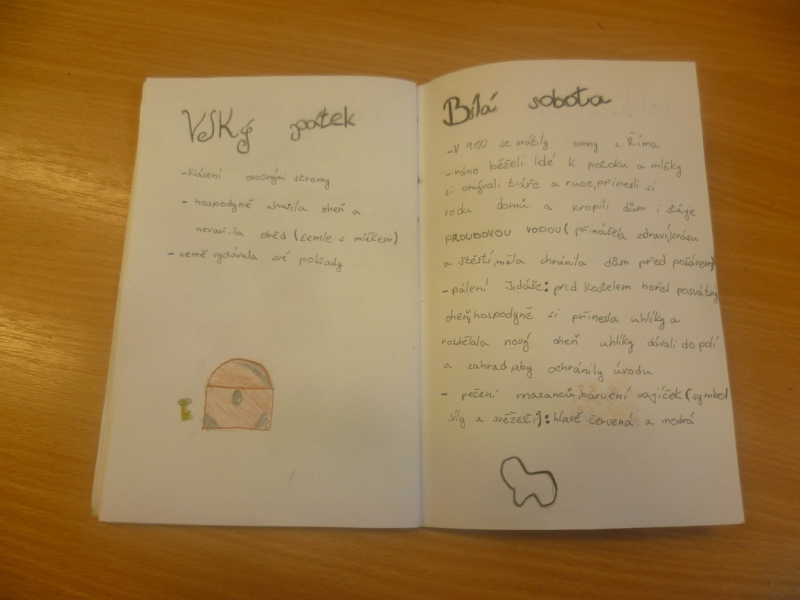 Velký pátek
-klácení ovocnými stromy
- hospodyně uhasila oheň a
nevařila oběd (žemle s mlékem)
- země vydávala své poklady
Bílá sobota
-V 9:00 se vrátily zvony z Říma
-ráno běželi lidé k potoku a mléky
si omývali tváře a ruce, přinesli si
vodu domů a kropili dům i stáje
PROUDOVOU VODOU (přinášela zdraví,krásu
a štěstí,měla chránila dům před požárem)
-pálení Jidáše: před kostelem hořel posvátný
oheň,hospodyně si přinesla uhlíky a
rozdělala nový oheň uhlíky dávali do polí
a zahrad,aby ochránily úrodu
- pečení mazanců,barvení vajíček (symbol
síly a svěžesti): hlavě červená a modrá